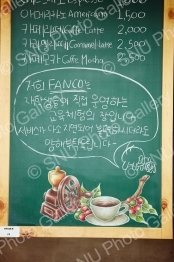 아메리카노 Americano 1,500
카페라떼 Caffe Latte 2,000
카라멜라떼 Caramel Latte 2,500
카페모카 Caffe Mocha 2,500
저희 FANCO는
재학생들이 직접 운영하는
교육체험의 장입니다
서비스가 다소 지연되어 불편하시더라도
양해부탁드립니다